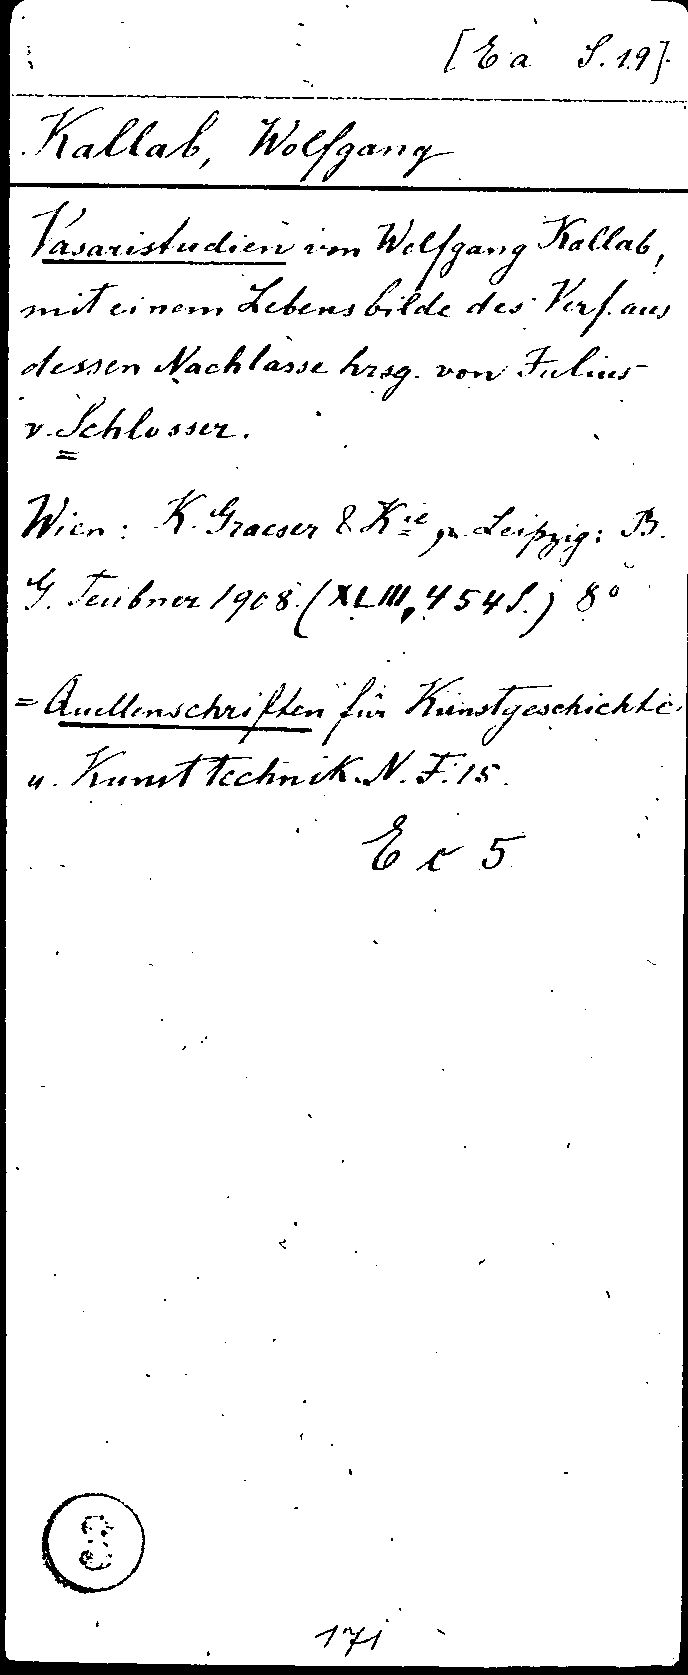 [E a S. 19]
Kallab, Wolfgang
Vasaristudien von Wolfgang Kallab,
mit einem Lebensbilde des Verf. aus
dessen Nachlasse hrsg. von Julius
v. Schlosser.
Wien: K. Graeser & Kie, Leipzig: B.
G. Teubner 1908. (XLIII, 454 S.) 8°
= Quellenschriften für Kunstgeschichte
u. Kunsttechnik. N. F. 15.
E c 5
171